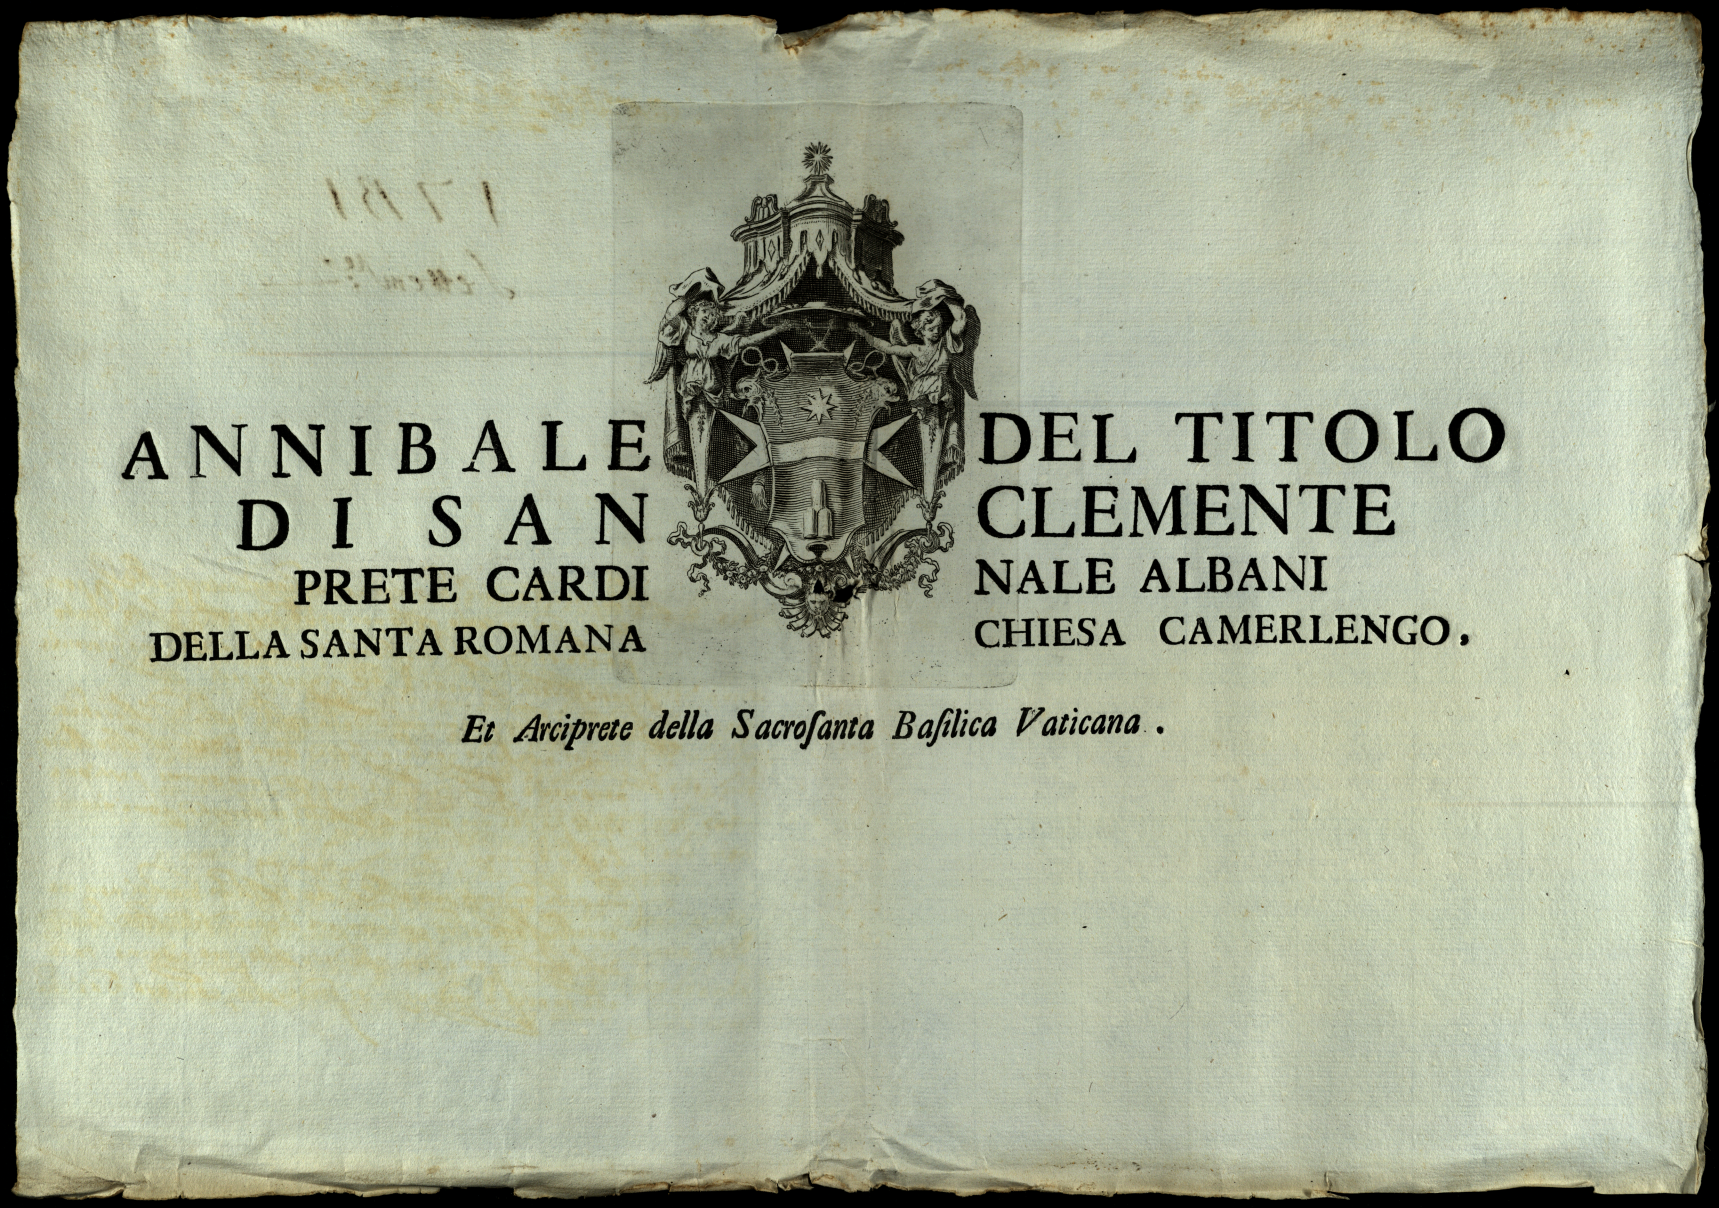 ANNIBALE DEL TITOLO
DI SAN CLEMENTE
PRETE CARDI NALE ALBANI
DELLA SANTA ROMANA CHIESA CAMERLENGO,
Et Arciprete della Sacroſanta Baſilica Vaticana.